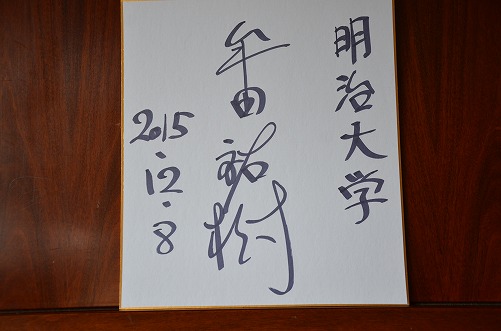 明治大学
牟田祐樹
2015.12.8